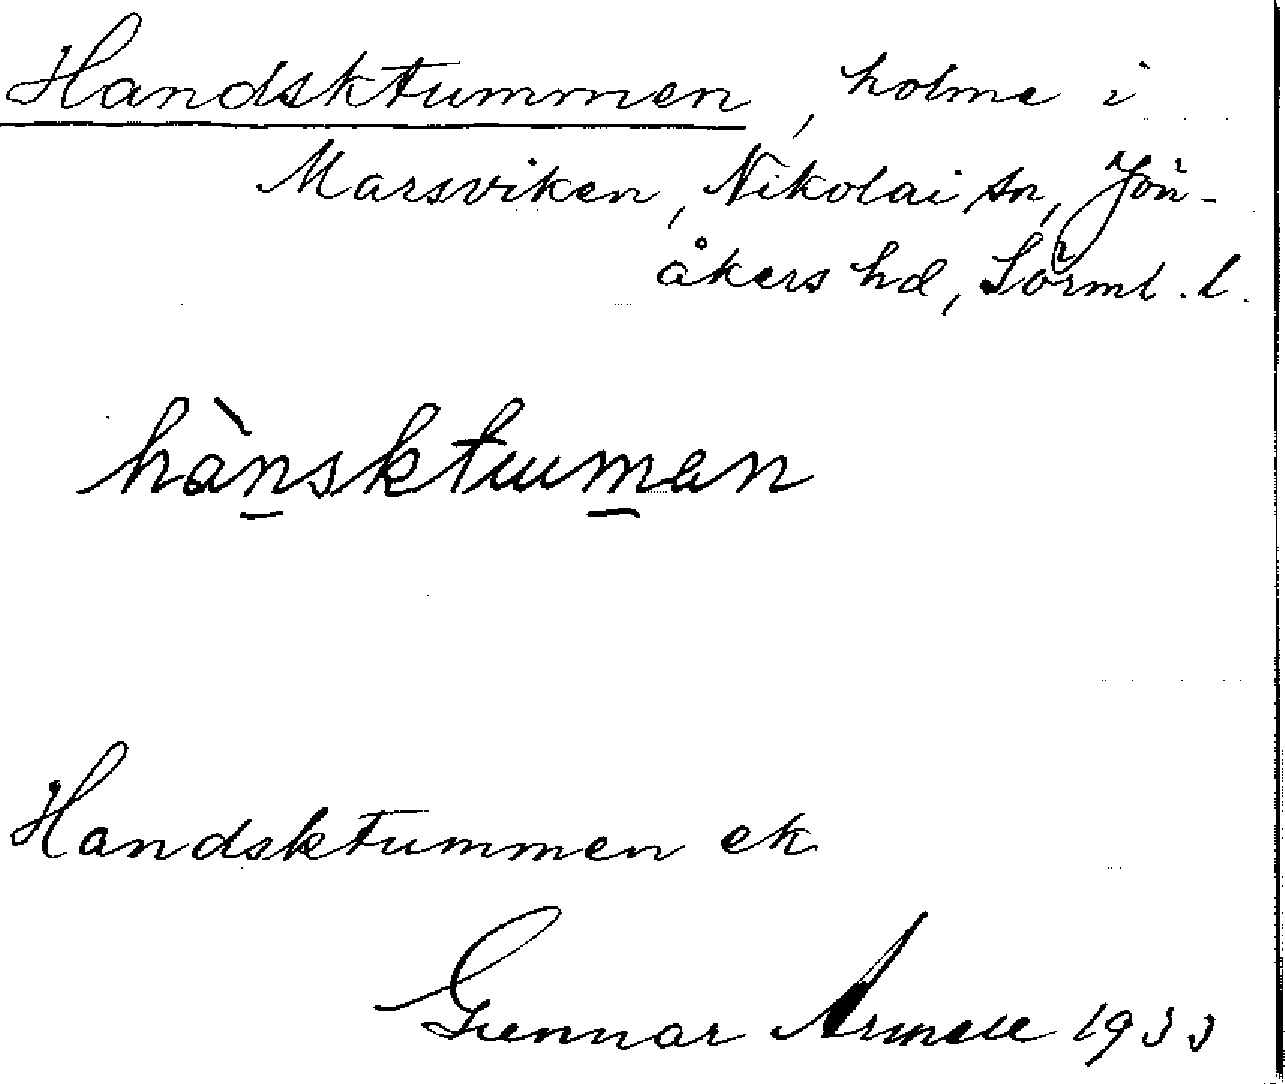 Handsktummen, holme i
Marsviken, Nikolai sn, Jön-
åkers hd, Sörml. l.
hànsktuman
Handsktummen ek
Gunnar 1933